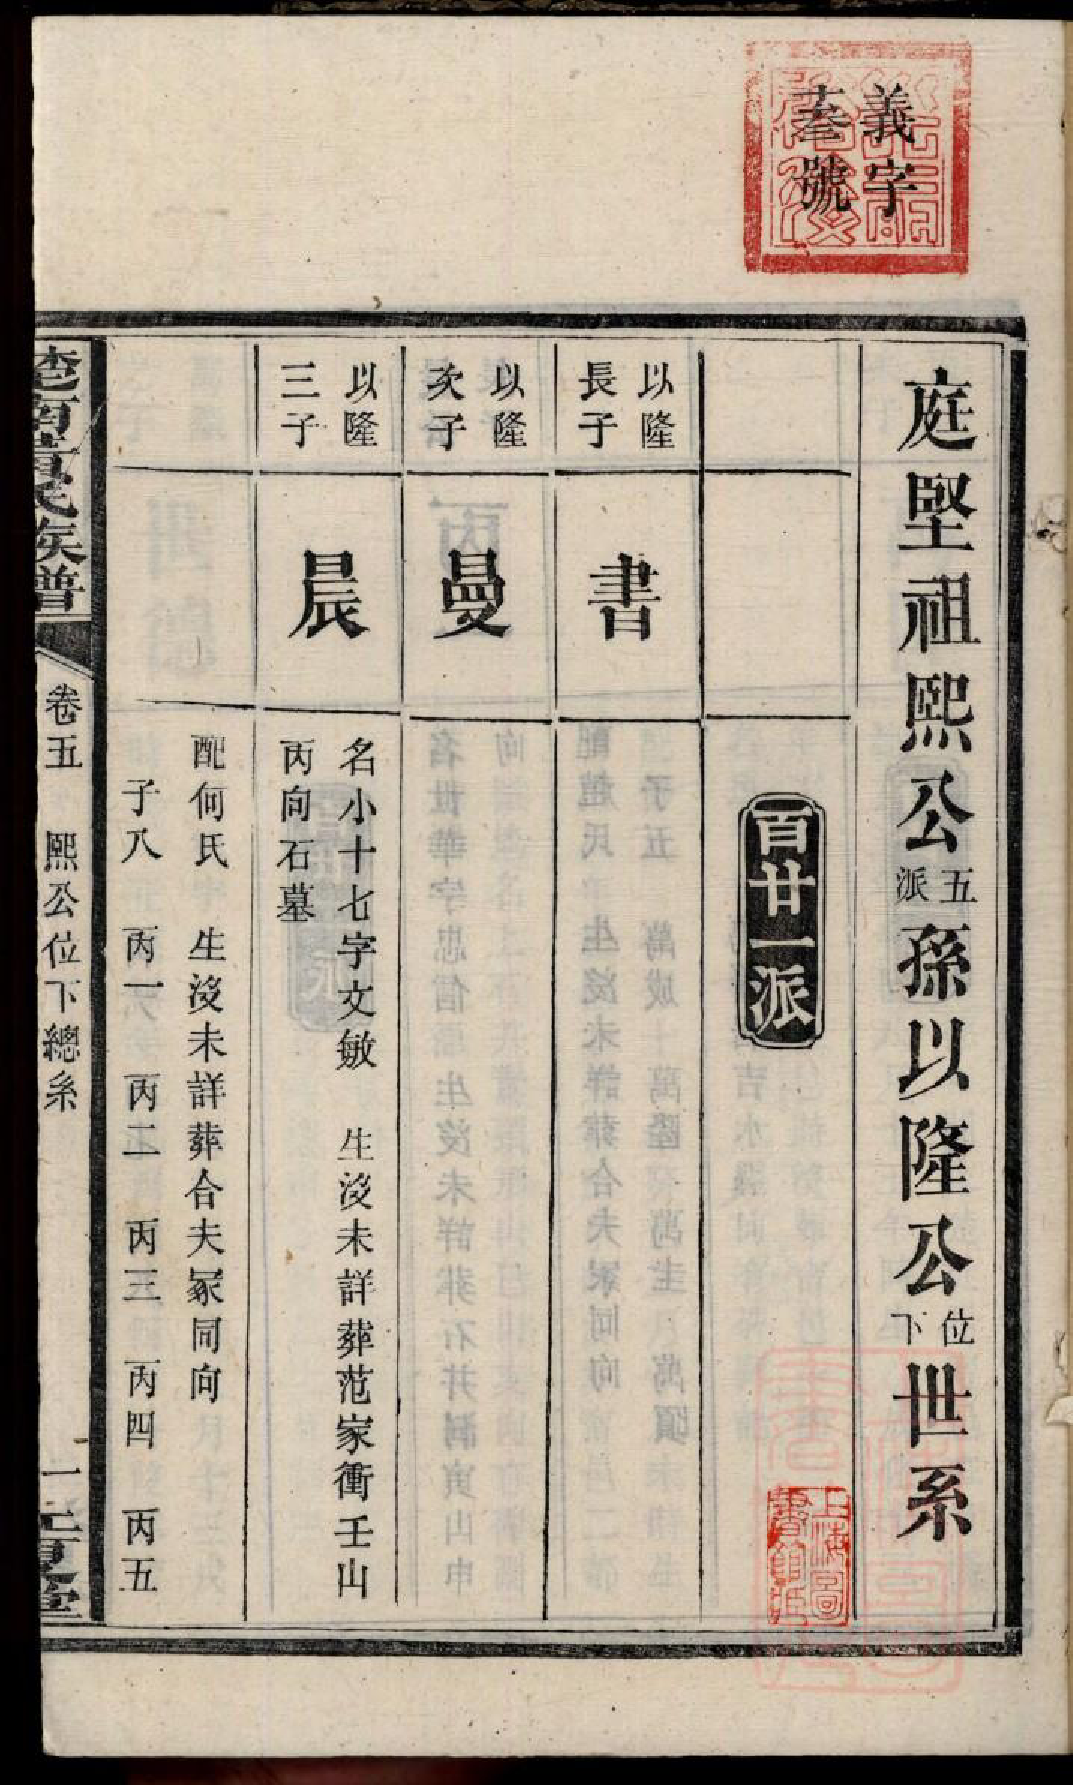 義字
叁號
庭堅祖熙公五派孫以隆公位下世系
百廿一派
以隆
長子
書
以隆
次子
曼
以隆
三子
晨
名小十七字文敏 生沒未詳葬范家衝壬山
丙向石墓
配何氏 生沒未詳葬合夫冢同向
子八 丙一 丙二 丙三 丙四 丙五
族譜
卷五 熙公位下總系
一
上海圖
書館藏